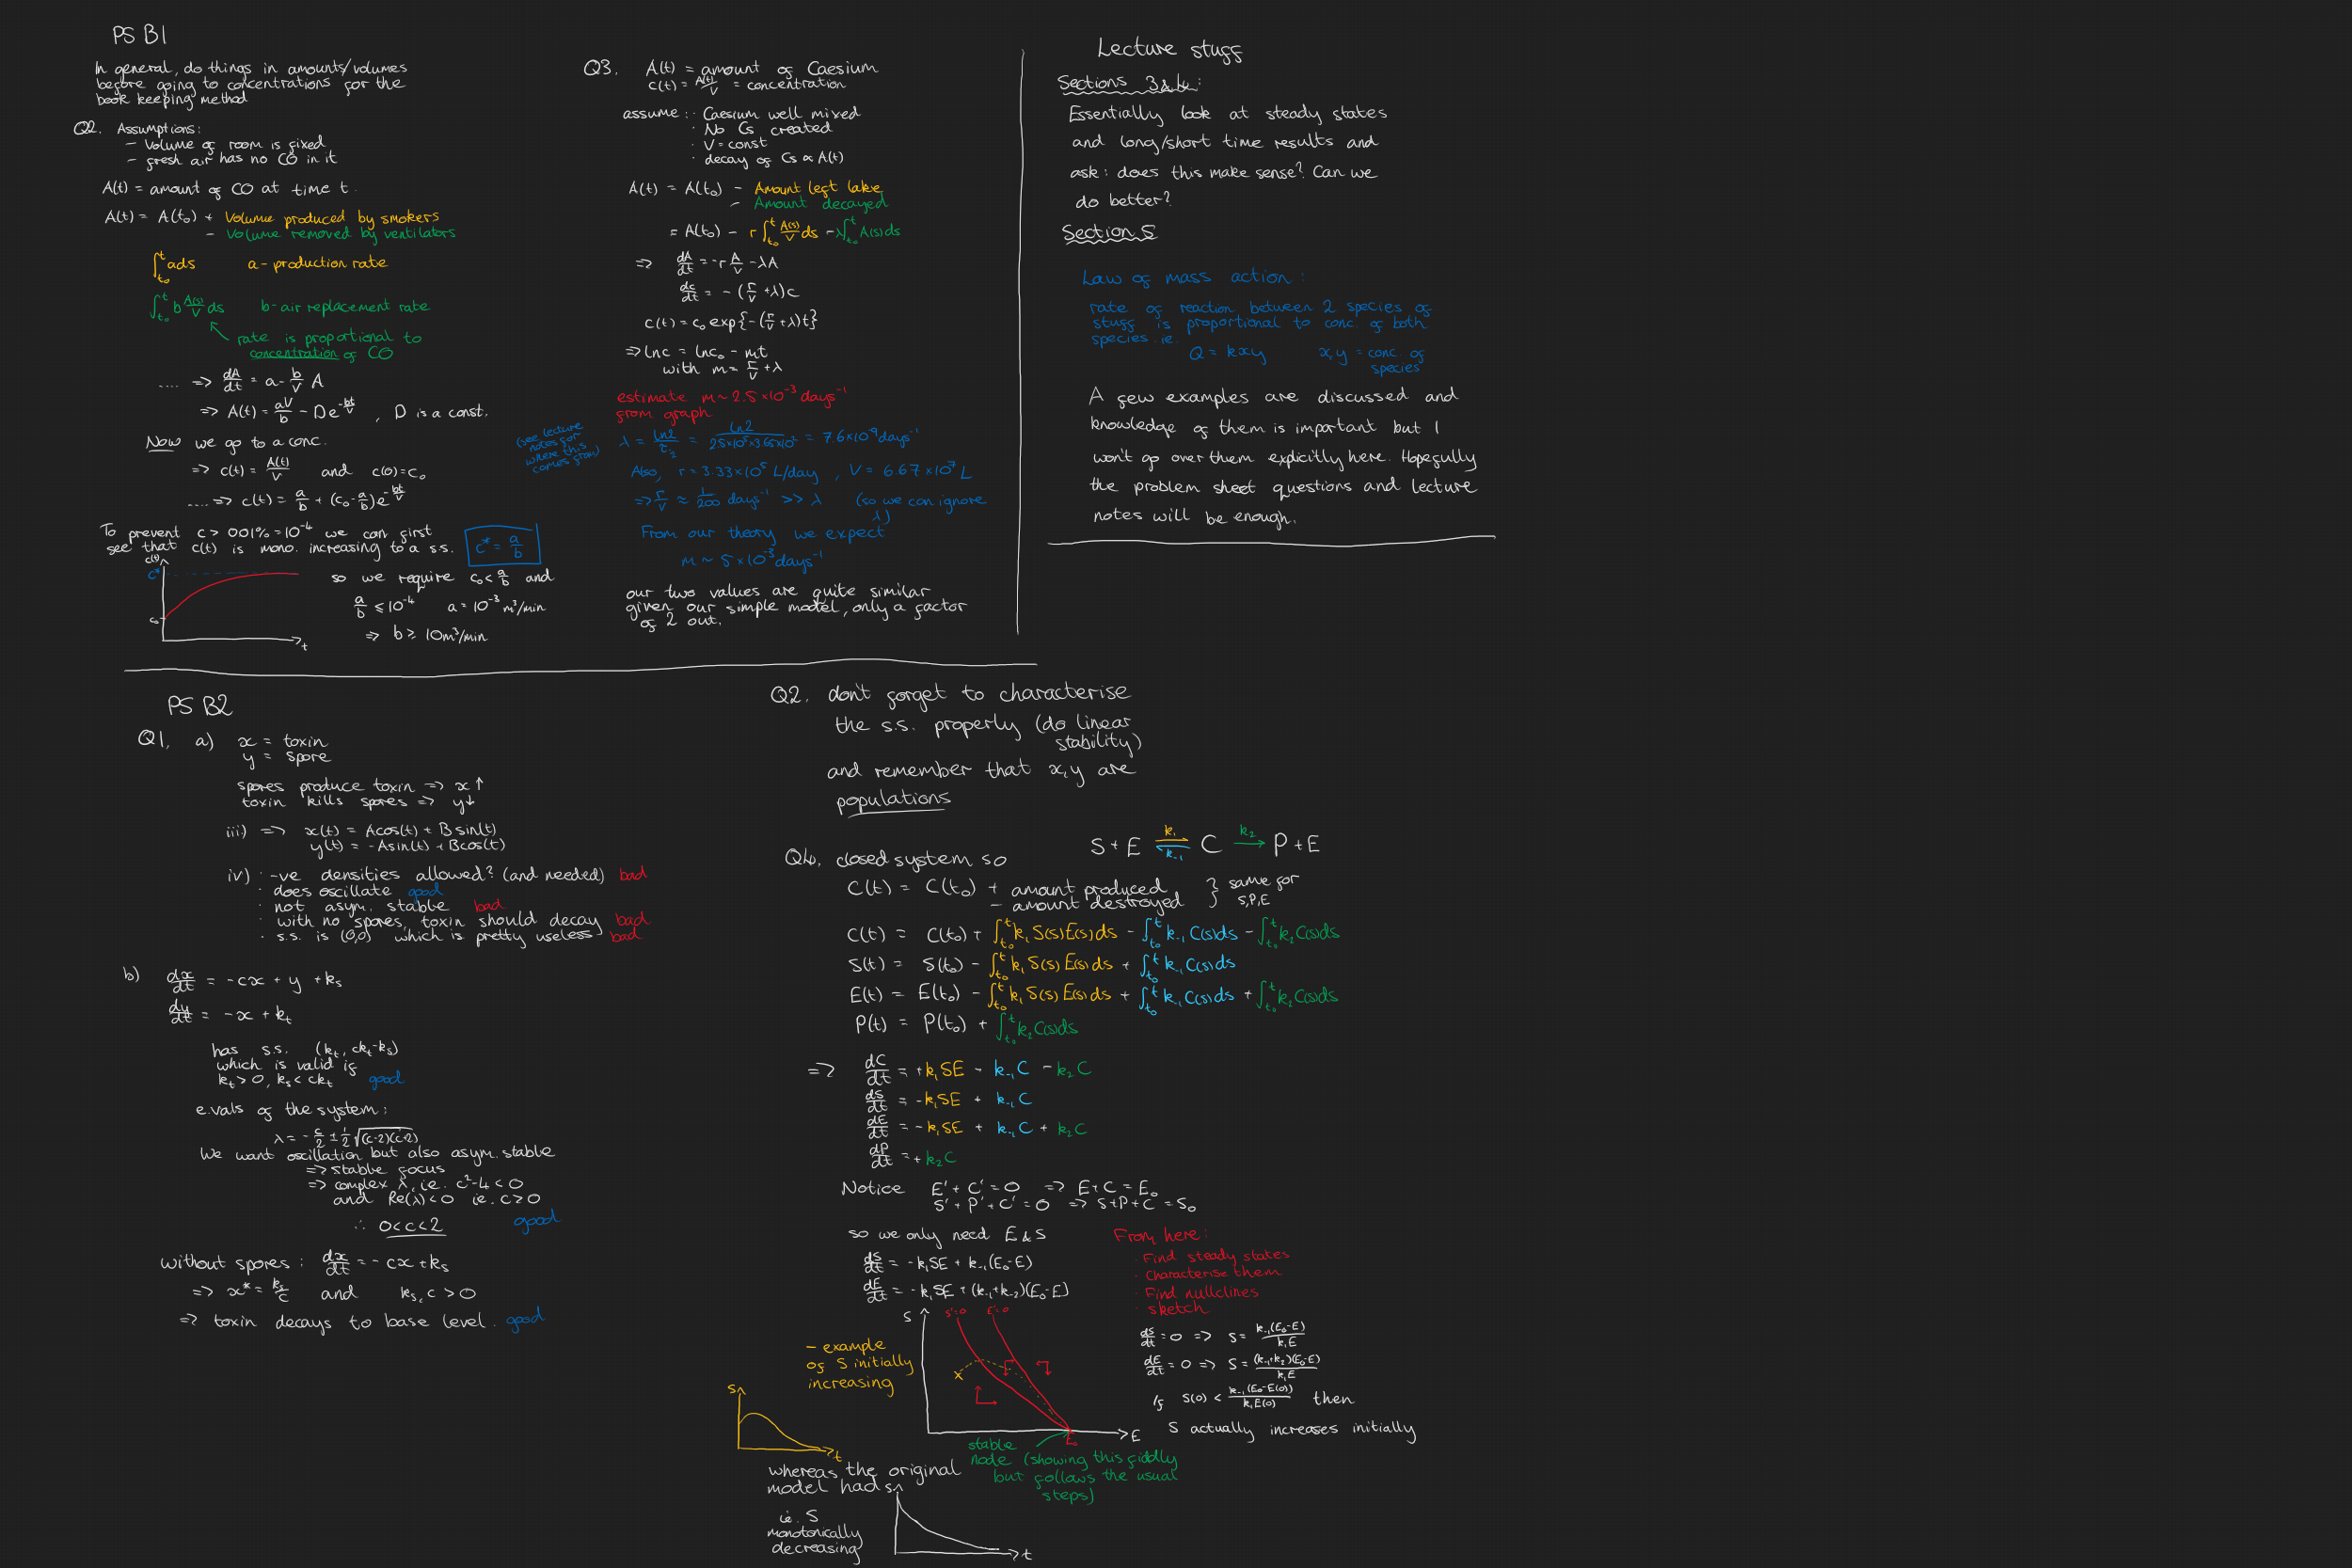 PS B1
In general, do things in amounts/volumes
before going to concentrations for the
book keeping method
Q2. Assumptions:
- Volume of room is fixed
- fresh air has no CO in it
A(t) = amount of CO at time t.
A(t) = A(t₀) + Volume produced by smokers
- Volume removed by ventilators
∫_{t₀}^t a ds a - production rate
∫_{t₀}^t b A(s)/V ds b - air replacement rate
rate is proportional to
concentration of CO
.... => dA/dt = a - b/V A
=> A(t) = aV/b - De^{-bt/V} , D is a const.
Now we go to a conc.
=> c(t) = A(t)/V and c(0) = c₀
.... => c(t) = a/b + (c₀ - a/b)e^{-bt/V}
To prevent c > 0.01% = 10⁻⁴ we can first
see that c(t) is mono. increasing to a s.s. c* = a/b
c(t)
c*
c₀
t
so we require c₀ < a/b and
a/b ≤ 10⁻⁴ a = 10⁻³ m³/min
=> b ≥ 10m³/min
Q3. A(t) = amount of Caesium
c(t) = A(t)/V = concentration
assume: · Caesium well mixed
· No Cs created
· V = const
· decay of Cs ∝ A(t)
A(t) = A(t₀) - Amount left lake
- Amount decayed
= A(t₀) - r∫_{t₀}^t A(s)/V ds - λ∫_{t₀}^t A(s)ds
=> dA/dt = -r A/V - λA
dc/dt = -(r/V + λ)c
c(t) = c₀ exp{-(r/V + λ)t}
=> ln c = ln c₀ - mt
with m = r/V + λ
estimate m ~ 2.5×10⁻³ days⁻¹
from graph
(see lecture
notes for
where this
comes from)
λ = ln2/τ_{1/2} = ln2/(2.5×10⁵×3.65×10²) = 7.6×10⁻⁹ days⁻¹
Also, r = 3.33×10⁵ L/day , V = 6.67×10⁷ L
=> r/V ≈ 1/200 days⁻¹ >> λ (so we can ignore
λ)
From our theory we expect
m ~ 5×10⁻³ days⁻¹
our two values are quite similar
given our simple model, only a factor
of 2 out.
Lecture stuff
Sections 3&4:
Essentially look at steady states
and long/short time results and
ask: does this make sense? Can we
do better?
Section 5
Law of mass action:
rate of reaction between 2 species of
stuff is proportional to conc. of both
species. ie.
Q = kxy x,y = conc. of
species
A few examples are discussed and
knowledge of them is important but I
won't go over them explicitly here. Hopefully
the problem sheet questions and lecture
notes will be enough.
PS B2
Q1. a) x = toxin
y = spore
spores produce toxin => x↑
toxin kills spores => y↓
iii) => x(t) = Acos(t) + Bsin(t)
y(t) = -Asin(t) + Bcos(t)
iv) · -ve densities allowed? (and needed) bad
· does oscillate good
· not asym. stable bad
· with no spores, toxin should decay bad
· s.s. is (0,0) which is pretty useless bad
b) dx/dt = -cx + y + kₛ
dy/dt = -x + kₜ
has s.s. (kₜ, ckₜ-kₛ)
which is valid if
kₜ > 0, kₛ < ckₜ good
e.vals of the system:
λ = -c/2 ± 1/2 √((c-2)(c+2))
We want oscillation but also asym. stable
=> stable focus
=> complex λ, i.e. c²-4 < 0
and Re(λ) < 0 ie. c > 0
∴ 0 < c < 2 good
without spores: dx/dt = -cx + kₛ
=> x* = kₛ/c and kₛ, c > 0
=> toxin decays to base level. good
Q2. don't forget to characterise
the s.s. properly (do linear
stability)
and remember that x,y are
populations
Q4. closed system so
S + E k₁ k₋₁ C k₂ → P + E
C(t) = C(t₀) + amount produced
- amount destroyed } same for
S,P,E
C(t) = C(t₀) + ∫_{t₀}^t k₁S(s)E(s)ds - ∫_{t₀}^t k₋₁C(s)ds - ∫_{t₀}^t k₂C(s)ds
S(t) = S(t₀) - ∫_{t₀}^t k₁S(s)E(s)ds + ∫_{t₀}^t k₋₁C(s)ds
E(t) = E(t₀) - ∫_{t₀}^t k₁S(s)E(s)ds + ∫_{t₀}^t k₋₁C(s)ds + ∫_{t₀}^t k₂C(s)ds
P(t) = P(t₀) + ∫_{t₀}^t k₂C(s)ds
=> dC/dt = +k₁SE - k₋₁C - k₂C
dS/dt = -k₁SE + k₋₁C
dE/dt = -k₁SE + k₋₁C + k₂C
dP/dt = +k₂C
Notice E' + C' = 0 => E+C = E₀
S' + P' + C' = 0 => S+P+C = S₀
so we only need E & S
dS/dt = -k₁SE + k₋₁(E₀-E)
dE/dt = -k₁SE + (k₋₁+k₋₂)(E₀-E)
From here:
· Find steady states
· Characterise them
· Find nullclines
· sketch
dS/dt = 0 => S = k₋₁(E₀-E)/k₁E
dE/dt = 0 => S = (k₋₁+k₂)(E₀-E)/k₁E
If S(0) < k₋₁(E₀-E(0))/k₁E(0) then
S actually increases initially
S
S'=0 E'=0
E
E₀
stable
node (showing this fiddly
but follows the usual
steps)
- example
of S initially
increasing
S
t
whereas the original
model had
S
t
ie. S
monotonically
decreasing